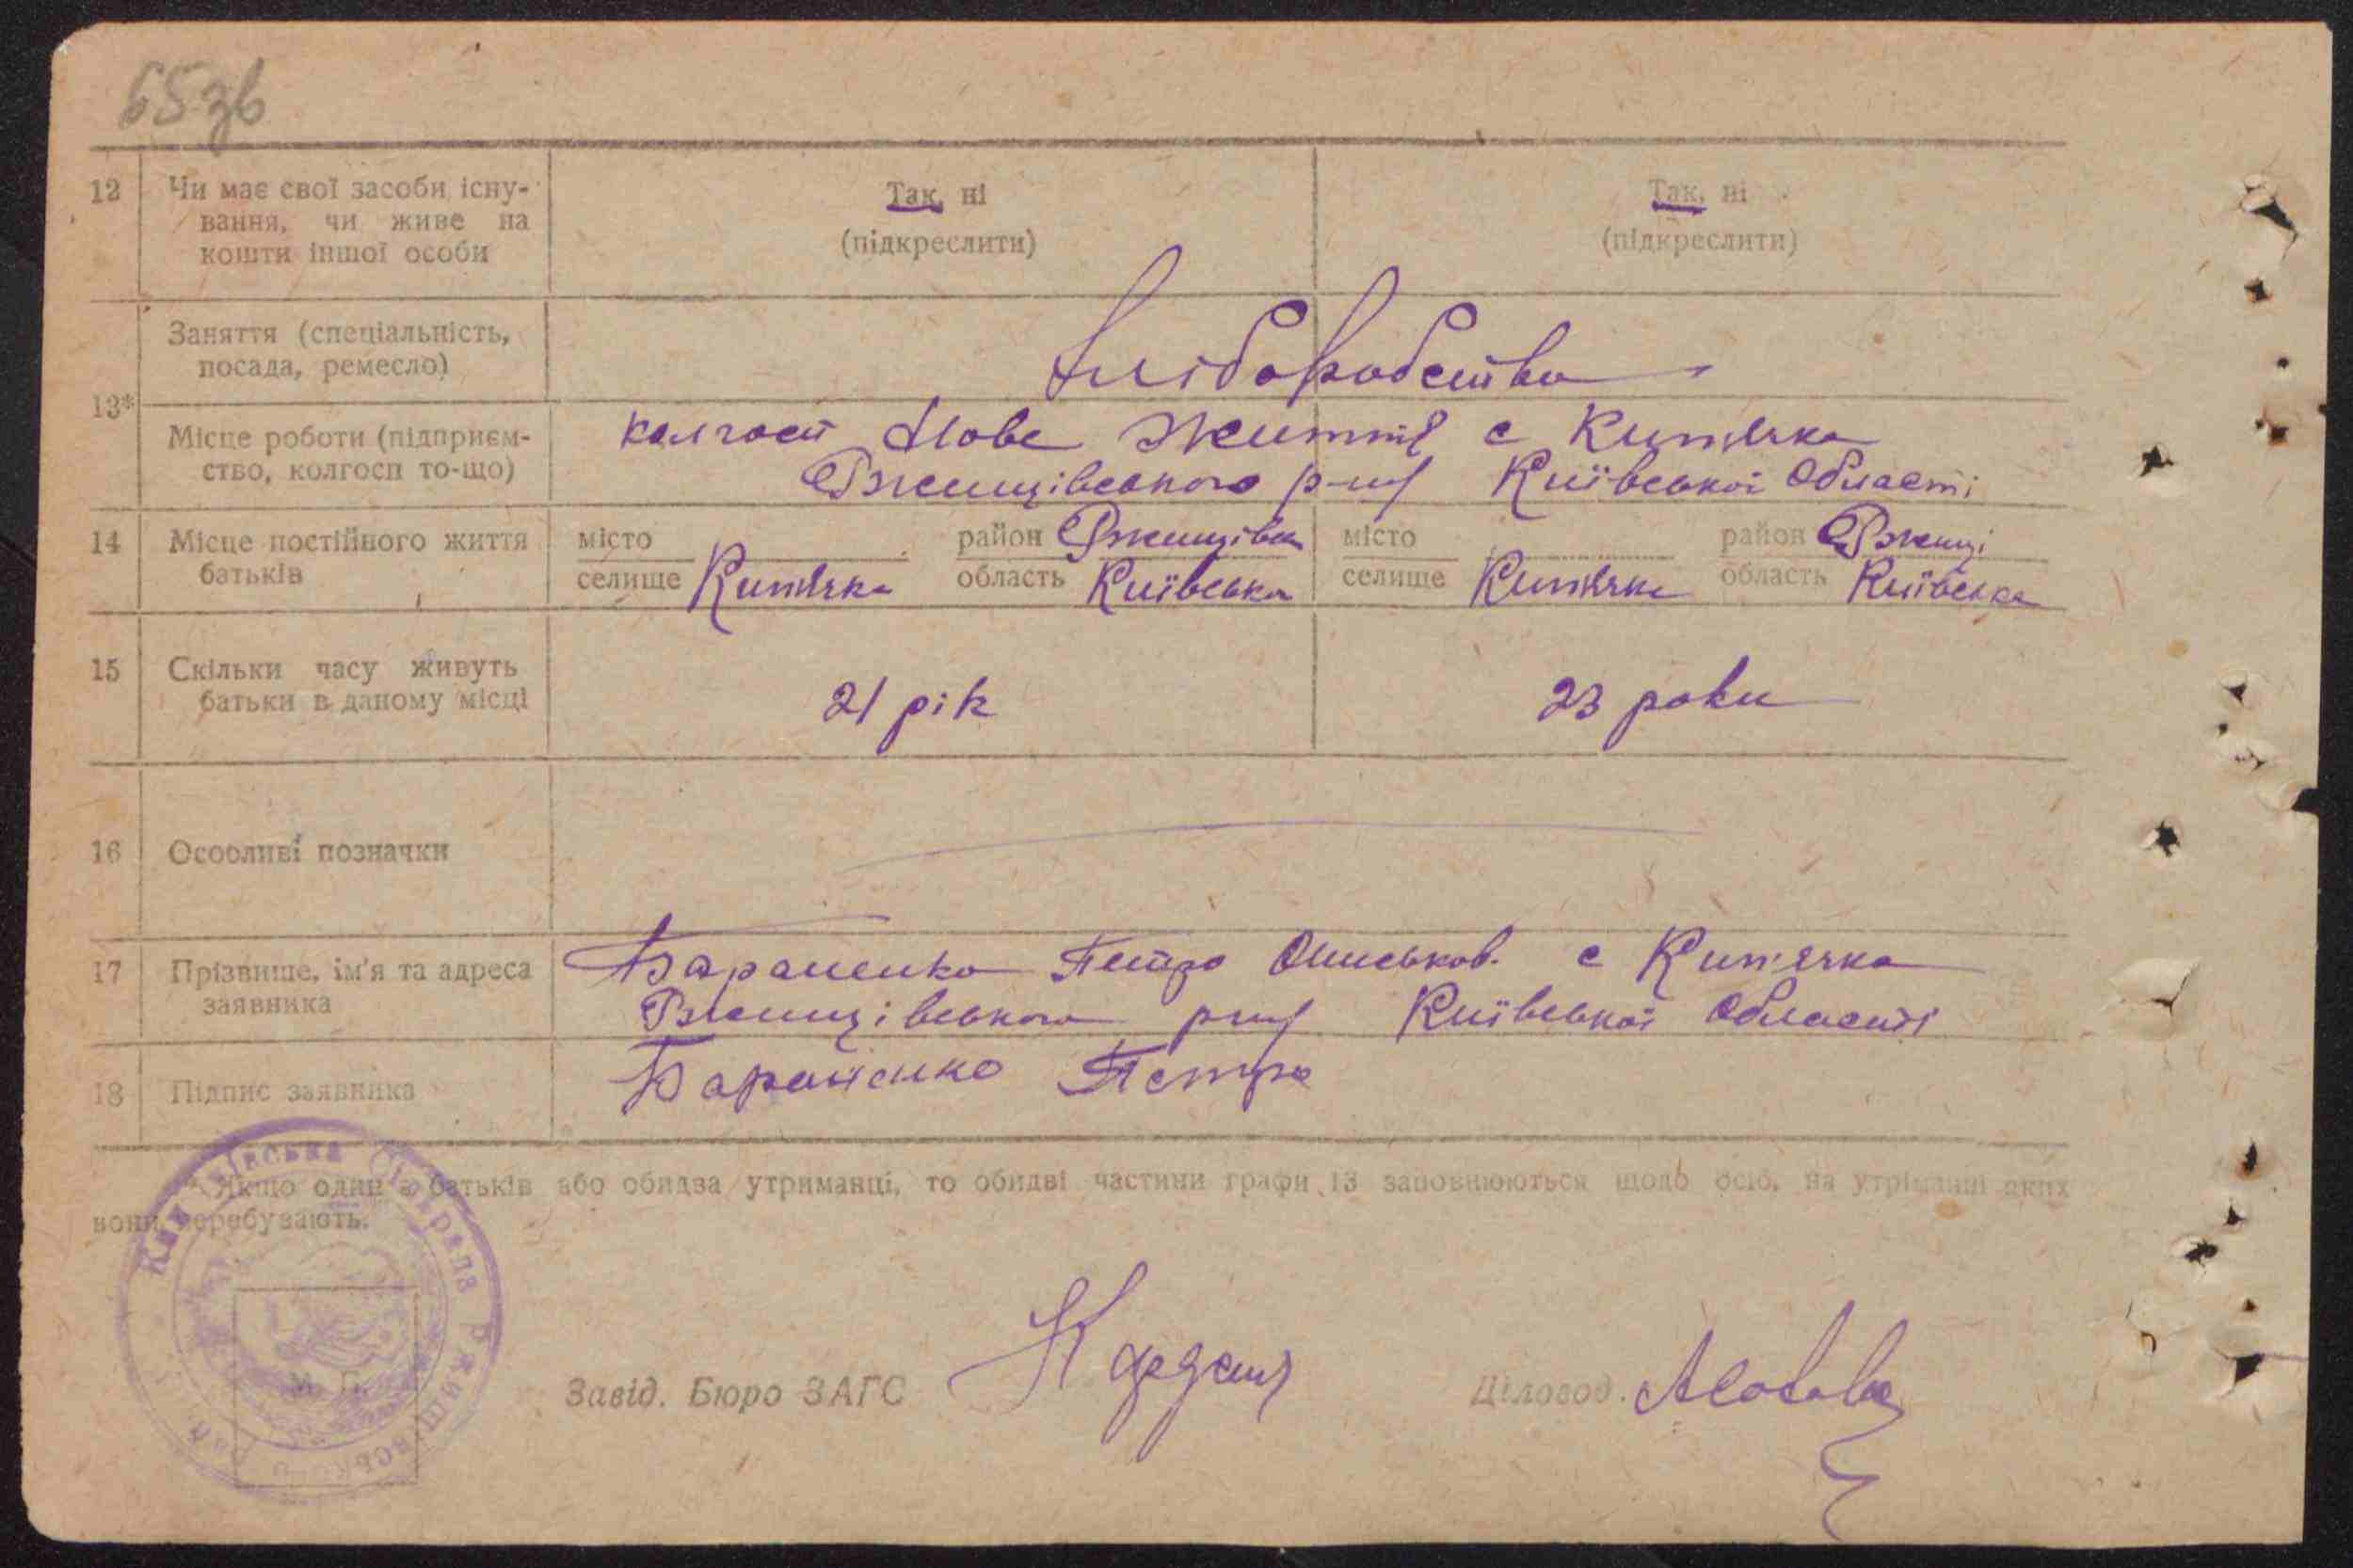 65 зв
12 Чи має свої засоби існу-
вання, чи живе на
кошти іншої особи
Так, ні
(підкреслити)
Так, ні
(підкреслити)
13*
Заняття (спеціальність,
посада, ремесло)
Хліборобство
Місце роботи (підприєм-
ство, колгосп то-що)
колгосп Нове Життя с Кип'ячка
Ржищівського р-ну Київської області
14 Місце постійного життя
батьків
місто район Ржищівськ
селище Кип'ячка область Київська
місто район Ржищі
селище Кип'ячка область Київська
15 Скільки часу живуть
батьки в даному місці
21 рік
23 роки
16 Особливі позначки
17 Прізвище, ім'я та адреса
заявника
Бараненко Петро с Кип'ячка
Ржищівського р-ну Київської області
18 Підпис заявника
Бараненко Петро
* Якщо один з батьків або обидва утриманці, то обидві частини графи 13 заповнюються щодо осіб, на утриманні яких
вони перебувають.
М. П.
Завід. Бюро ЗАГС
Діловод.